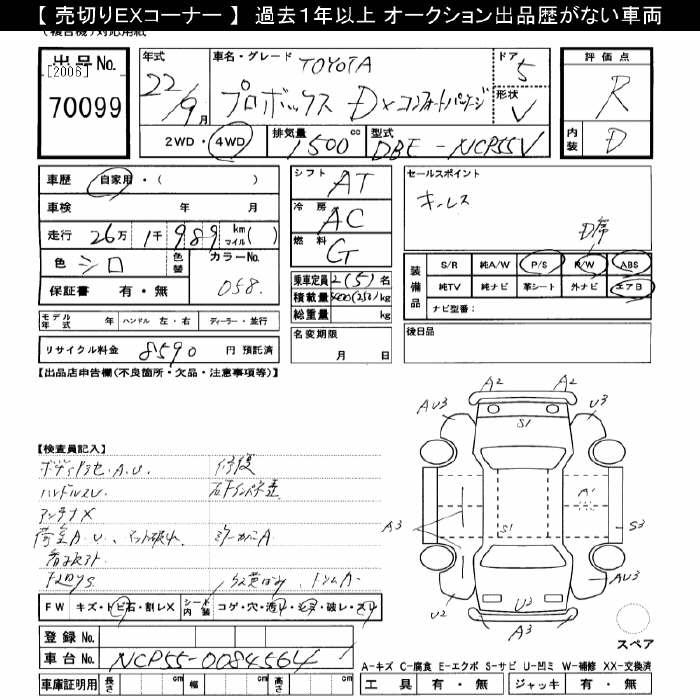 【 売切りEXコーナー 】 過去１年以上 オークション出品歴がない車両
出品No.
[2006]
70099
年式
22/9月
車名・グレード
TOYOTA
プロボックス DXコンフォートパッケージ
ドア
5
形状
V
2WD・4WD
排気量
1500cc
型式
DBE-NCP55V
評価点
R
内装
D
車歴 自家用・( )
車検 年 月
走行 26万 1千 989 km マイル ( )
色 シロ 色替 カラーNo. 058
保証書 有・無
モデル年式 年 ハンドル 左・右 ディーラー・並行
リサイクル料金 8590 円 預託済
シフト AT
冷房 AC
燃料 G
乗車定員 2(5)名
積載量 400(250)kg
総重量 kg
名変期限
月 日
セールスポイント
キーレス
D席
装備品
S/R 純A/W P/S P/W ABS
純TV 純ナビ 革シート 外ナビ エアB
ナビ型番：
後日品
【出品店申告欄(不良箇所・欠品・注意事項等)】
【検査員記入】
修復
ハンドルスレ
アンテナX
荷室A.U.、マット破れ
ミラーカバーA
下回りS
FW キズ・トビ石・割レX
シート内装 コゲ・穴・汚レ・シミ・破レ・スレ
登録No.
車台No. NCP55-0084564
車庫証明用 長さ cm 幅 cm 高さ cm
A2 A2
AU3 U3
S1
A1
A3 S1 S3
AU3
U2 U2
A3
スペア
A-キズ C-腐食 E-エクボ S-サビ U-凹ミ W-補修 XX-交換済
工具 有・無 ジャッキ 有・無